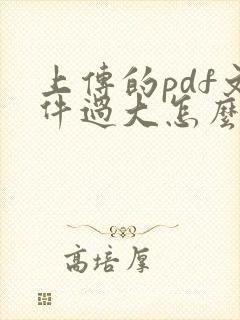 上傳的pdf文
件過大怎麼
高培厚